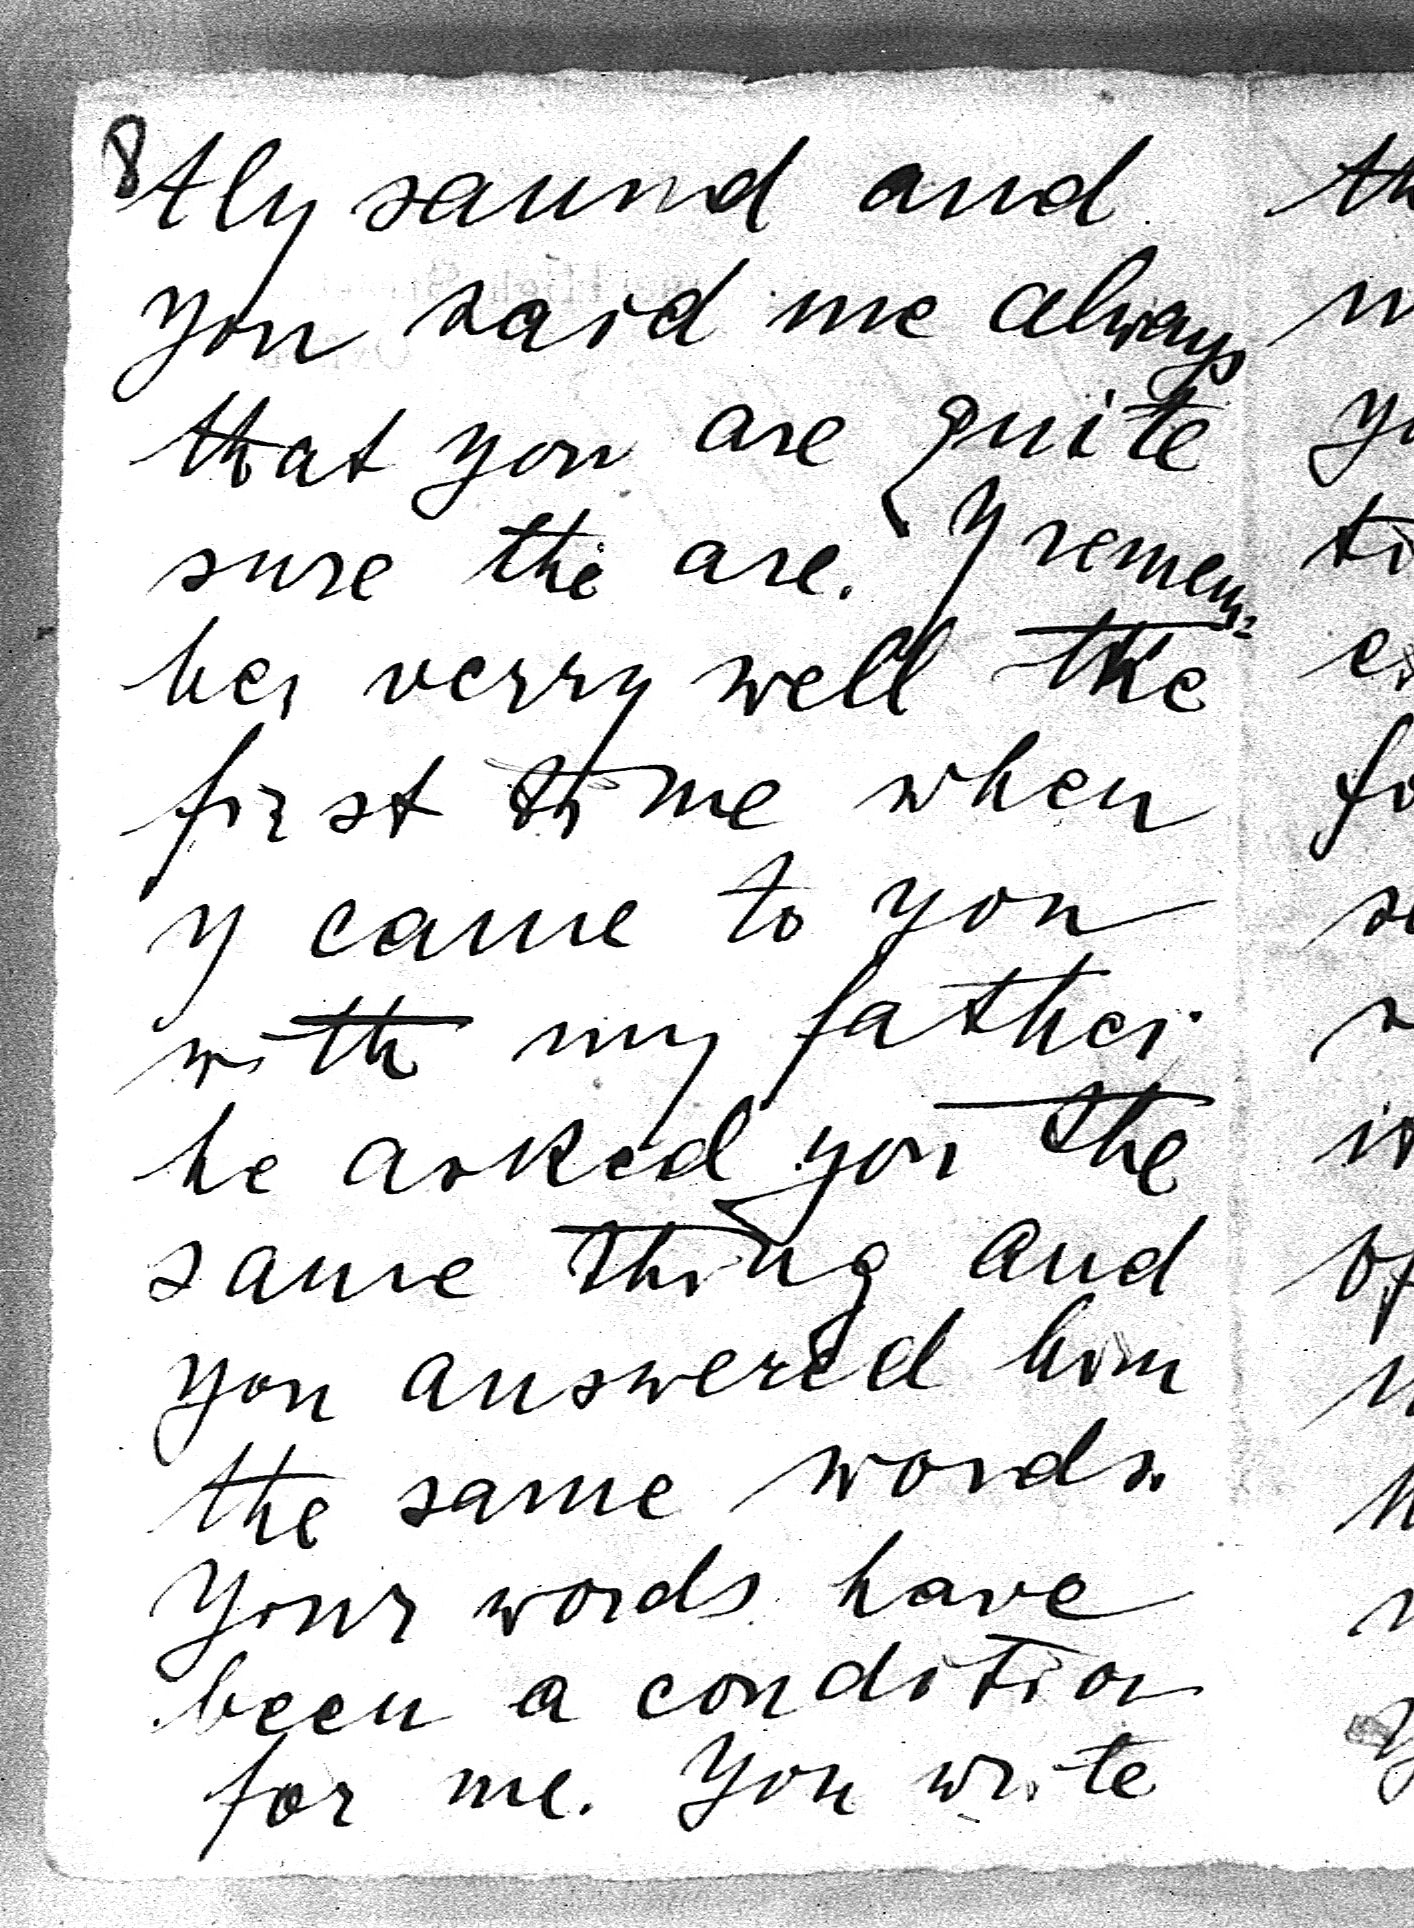 8
tly saund and
you said me always
that you are quite
sure the are. Y remem=
ber verry well the
first time when
y came to you
with my father
he asked you the
same thing and
you answered him
the same words.
Your words have
been a condition
for me. You write